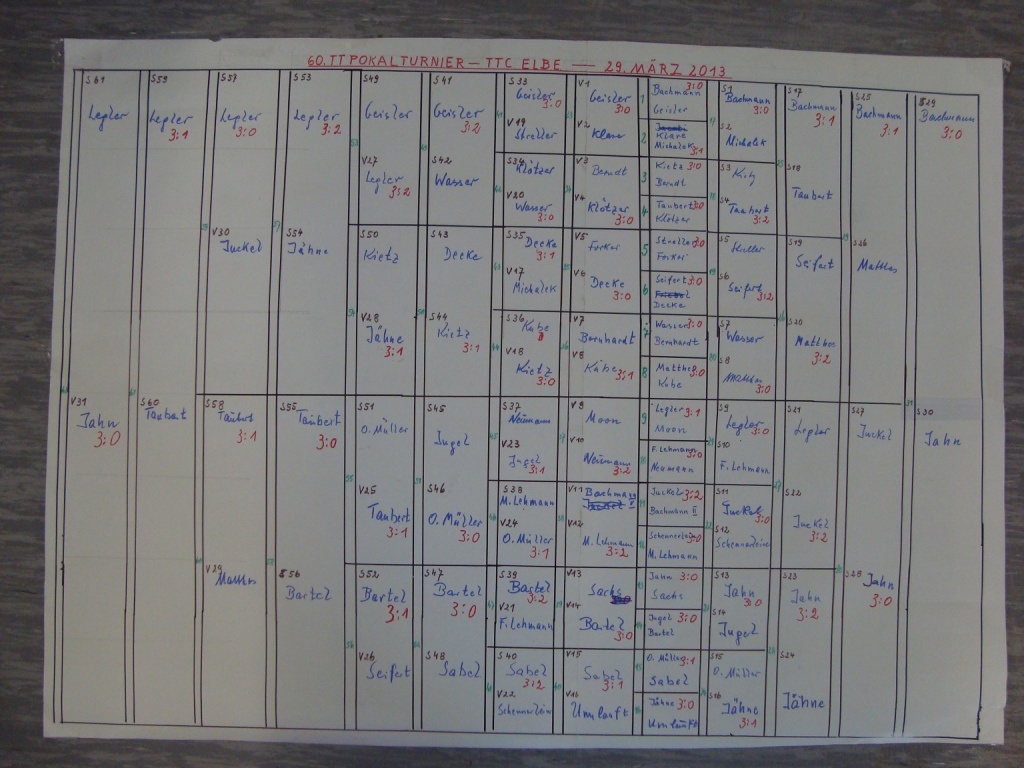 60. TT POKALTURNIER - TTC ELBE — 29. MÄRZ 2013
S61
Legler
V31
Jahn
3:0
S59
Legler
3:1
S60
Taubert
S57
Legler
3:0
V30
Juckel
S58
Taubert
3:1
V29
Matthes
S53
Legler
3:2
S54
Jähne
S55
Taubert
3:0
S56
Bartel
S49
Geisler
V27
Legler
3:2
S50
Kietz
V28
Jähne
3:1
S51
O. Müller
V25
Taubert
3:1
S52
Bartel
3:1
V26
Seifert
S41
Geisler
3:2
S42
Wasser
S43
Decke
S44
Kietz
3:1
S45
Jugel
S46
O. Müller
3:0
S47
Bartel
3:0
S48
Sabel
S33
Geisler
3:0
V19
Streller
S34
Klötzer
V20
Wasser
3:0
S35
Decke
3:1
V17
Michalek
S36
Käbe
V18
Kietz
3:0
S37
Neumann
V23
Jugel
3:1
S38
M. Lehmann
V24
O. Müller
3:1
S39
Bartel
3:2
V21
F. Lehmann
S40
Sabel
3:2
V22
Schennerlein
V1
Geisler
3:0
V2
Klare
V3
Berndt
V4
Klötzer
3:0
V5
Forker
V6
Decke
3:0
V7
Bernhardt
V8
Käbe
3:1
V9
Moon
V10
Neumann
3:2
V11
Bachmann II
V12
M. Lehmann
3:2
V13
Sachs
V14
Bartel
3:0
V15
Sabel
3:1
V16
Umlauft
1
Bachmann 3:0
Geisler
2
Klare
Michalek 3:1
3
Kietz 3:0
Berndt
4
Taubert 3:0
Klötzer
5
Streller 3:0
Forker
6
Seifert 3:0
Decke
7
Wasser 3:0
Bernhardt
8
Matthes 3:0
Käbe
9
Legler 3:1
Moon
10
F. Lehmann 3:0
Neumann
11
Juckel 3:2
Bachmann II
12
Schennerlein 3:0
M. Lehmann
13
Jahn 3:0
Sachs
14
Jugel 3:0
Bartel
15
O. Müller 3:1
Sabel
16
Jähne 3:0
Umlauft
S1
Bachmann
3:0
S2
Michalek
S3
Kietz
S4
Taubert
3:2
S5
S6
Seifert
3:2
S7
Wasser
S8
Matthes
3:0
S9
Legler
3:0
S10
F. Lehmann
S11
Juckel
3:0
S12
Schennerlein
S13
Jahn
3:0
S14
Jugel
S15
O. Müller
S16
Jähne
3:1
S17
Bachmann
3:1
S18
Taubert
S19
Seifert
S20
Matthes
3:2
S21
Legler
S22
Juckel
3:2
S23
Jahn
3:2
S24
Jähne
S25
Bachmann
3:1
S26
Matthes
S27
Juckel
S28
Jahn
3:0
S29
Bachmann
3:0
S30
Jahn